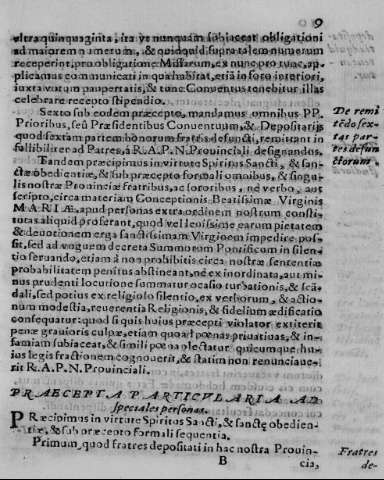 9
vltra quinquaginta, ita vt nunquam subiaceat obligationi
ad maiorem numerum, & quidquid supra talem numerum
receperint, pro obligatione Missarum, ex nunc pro tunc, ap-
plicamus communitati in qua habitat, etiã in foro interiori,
iuxta votum paupertatis, & tunc Conventus tenebitur illas
celebrare recepto stipendio.
Sexto sub eodem præcepto, mandamus omnibus PP.
Prioribus, seu Præsidentibus Conventuum, & Depositarijs
quod sextam partem bonorum fratris defuncti, remittant in
fallibiliter ad Patres, à R. A. P. N. Prouinciali designandos.
De remi
tẽdo sex-
tas par-
tes defun
ctorum.
Tandem præcipimus in virtute Spiritus Sancti, & san-
ctæ obedientiæ, & sub præcepto formali omnibus, & singu-
lis nostræ Prouinciæ fratribus, ac sororibus, ne verbo, aut
scripto, circa materiam Conceptionis Beatissimæ Virginis
MARIÆ, apud personas extra ordinem nostrum consti-
tutas aliquid proferant, quod vel levissime earum pietatem
& deuotionem erga sanctissimam Virginem impedire pos-
sit, sed ad vnguem decreta Summorum Pontificum in silen-
tio seruando, etiam à non prohibitis circa nostræ sententiæ
probabilitatem penitus abstineant, ne ex inordinata, aut mi-
nus prudenti locutione summatur occasio turbationis, & scã-
dali, sed potius ex religioso silentio, ex verborum, & actio-
num modestia, reuerentia Religionis, & fidelium ædificatio
consequatur: quod si quis huius præcepti violator extiterit
penæ grauioris culpæ, etiam quoad pœnas priuatiuas, & in-
famiam subiaceat, & simili pœna plectatur quicumque hu-
ius legis fractionem cognouerit, & statim non renunciaue-
rit R. A. P. N. Prouinciali.
PRÆCEPTA PARTICULARIA AD
speciales personas.
PRæcipimus in virtute Spiritus Sancti, & sanctę obedien-
tiæ, & sub præcepto formali sequentia.
Primum, quod fratres depositati in hac nostra Prouin-
Fratres
B
cia,
de-